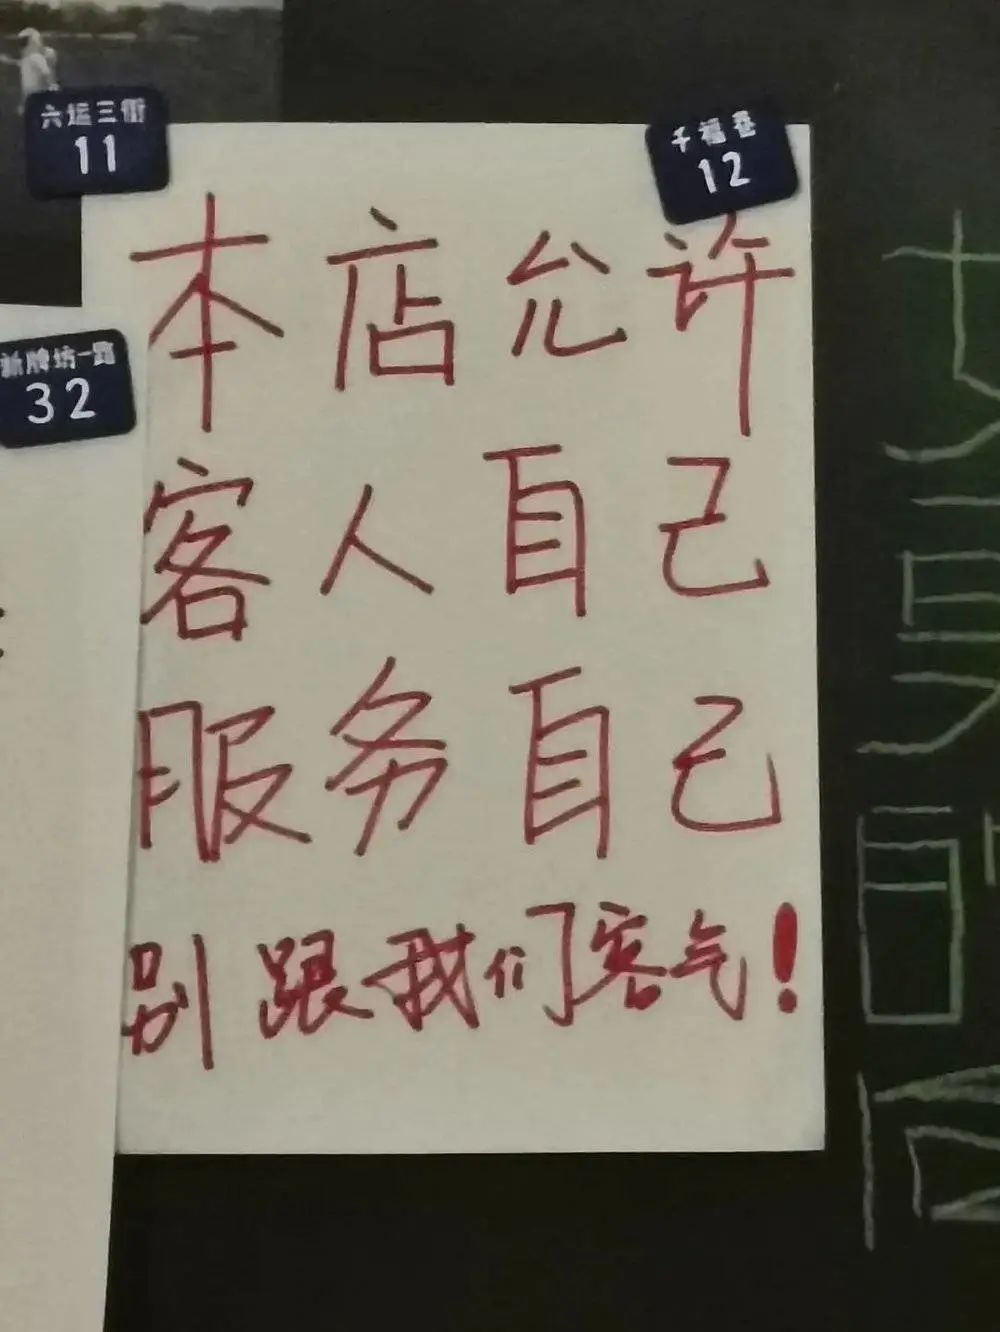 六运三街
11
千福巷
12
新牌坊一路
32
本店允许
客人自己
服务自己
别跟我们客气！